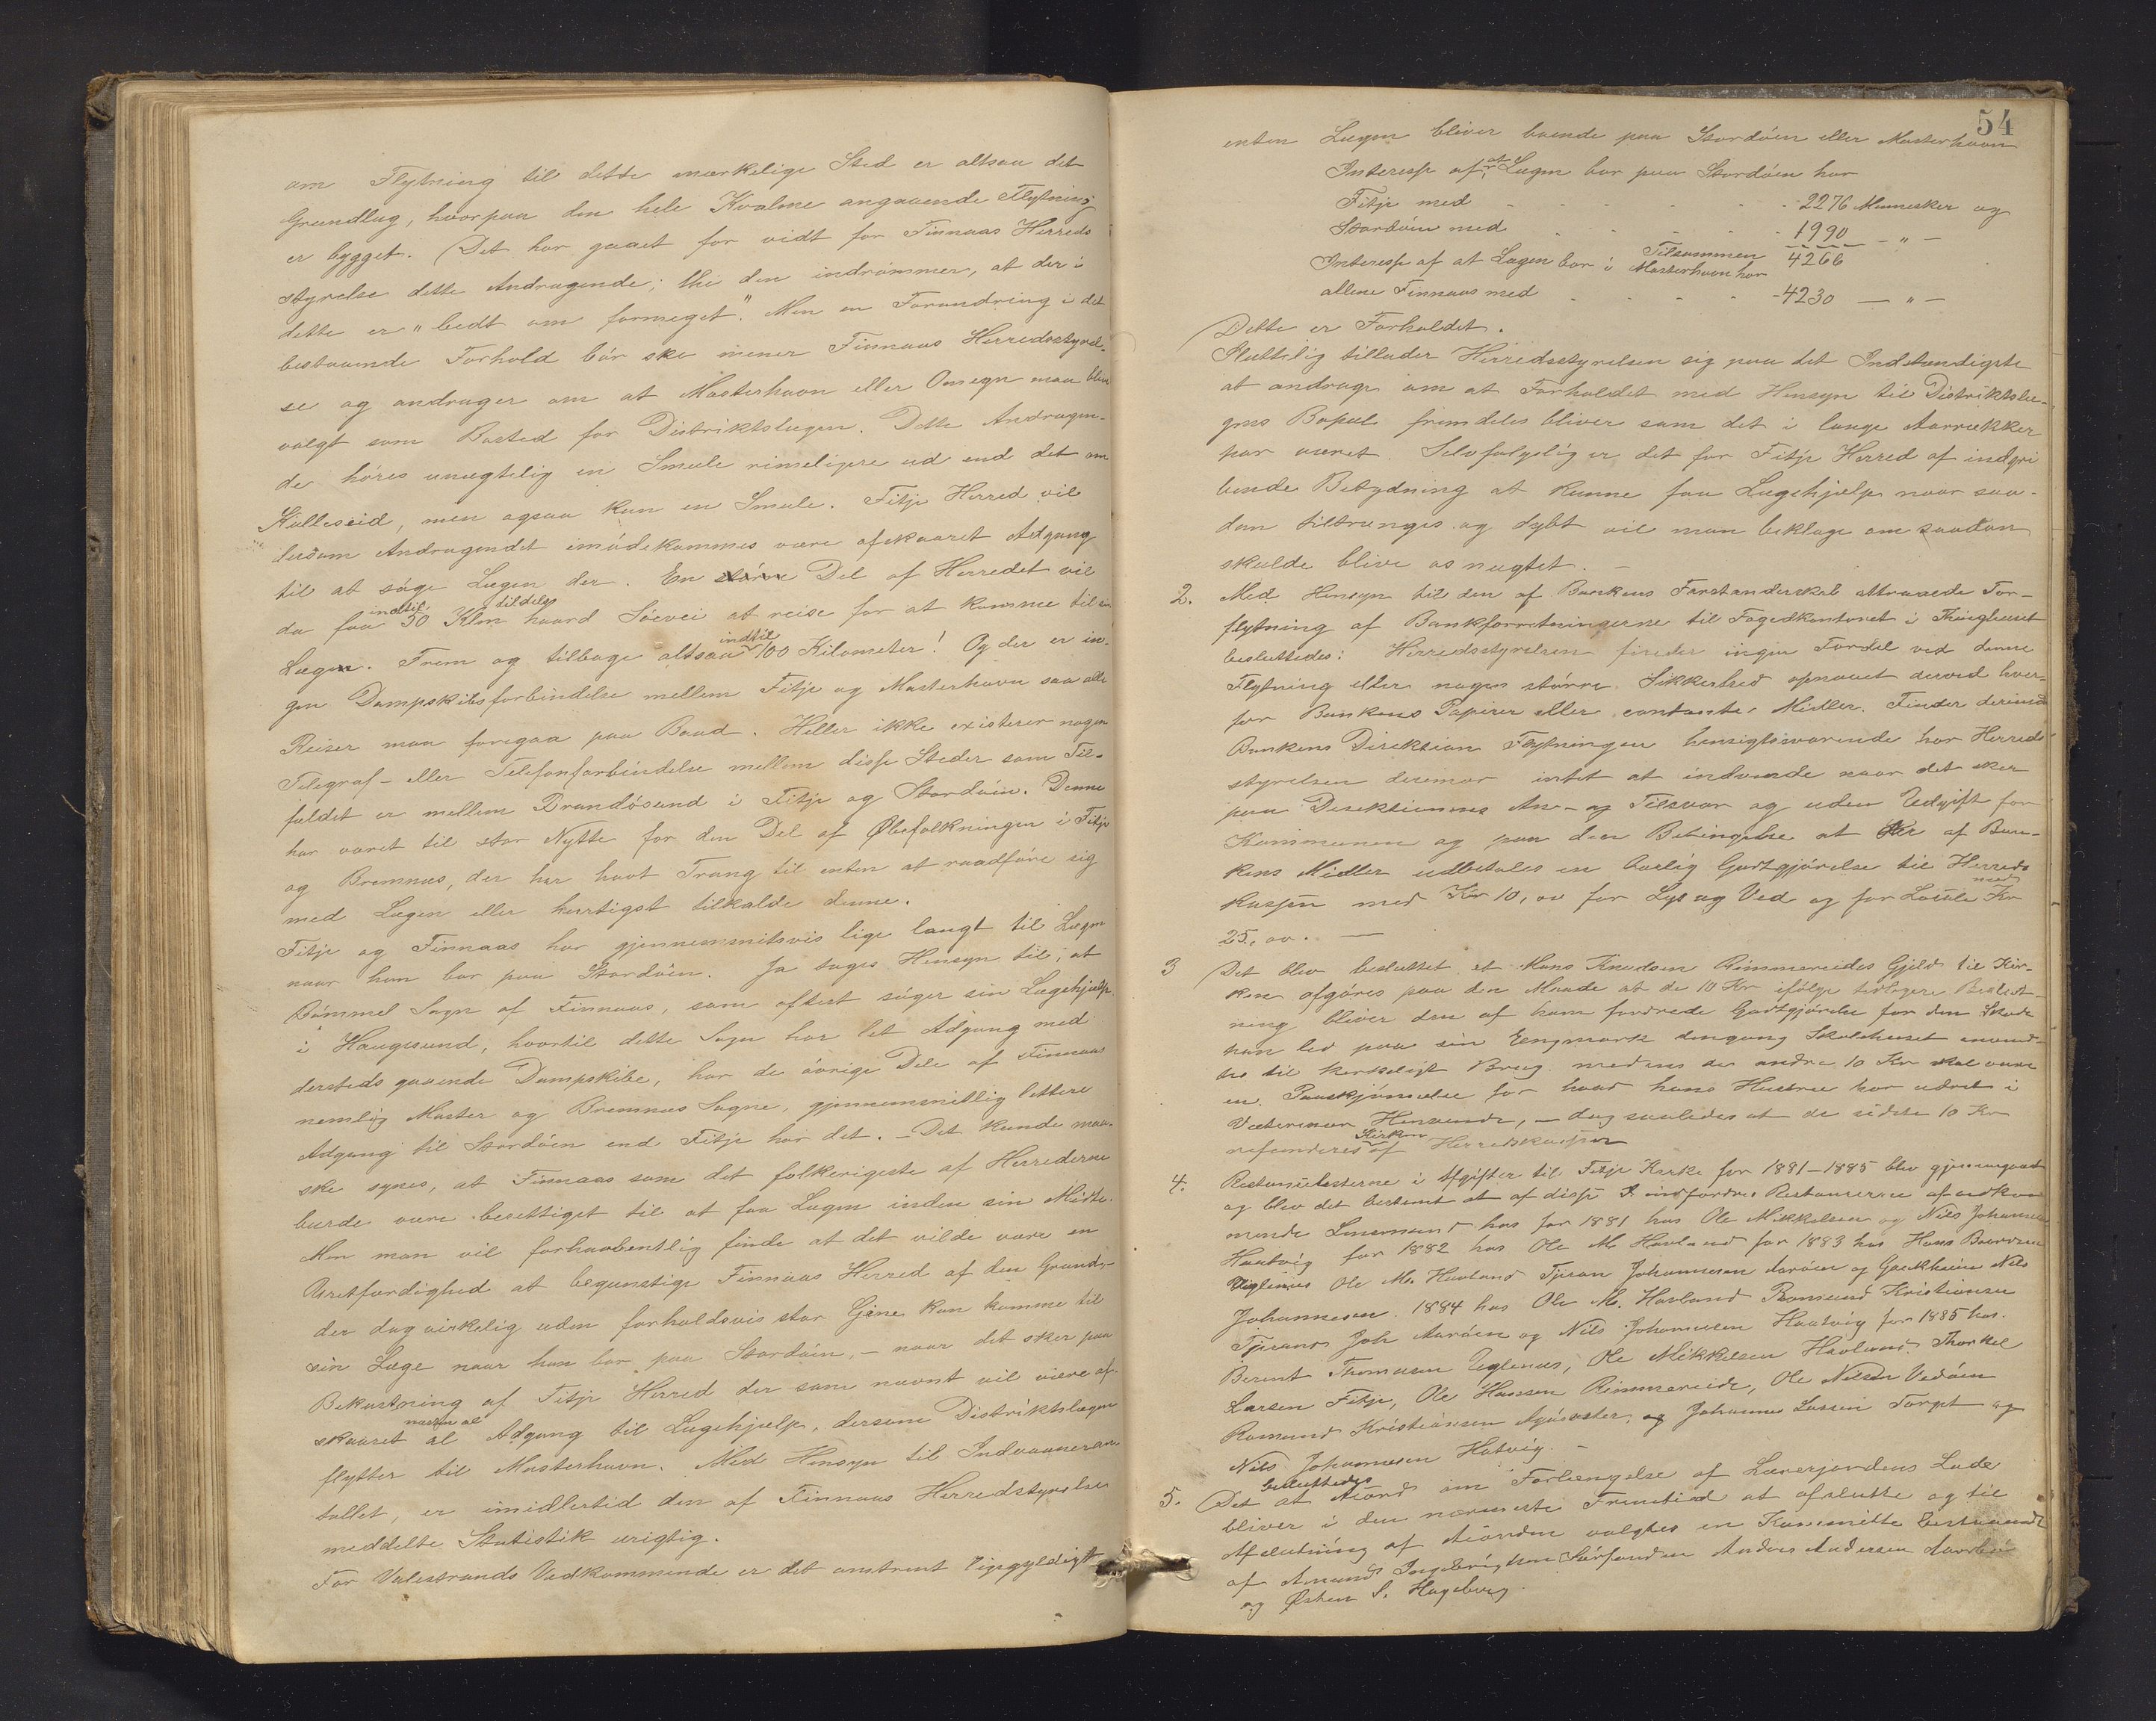 om Flytning til dette mærkelige Sted er altsaa det
Grundlag, hvorpaa den hele Kvalme angaaende Flytning
er bygget. (Det har gaaet for vidt for Finnaas Herreds
styrelse dette Andragende; thi den indrømmer, at der i
dette er "bedt om formeget". Men en Forandring i det
bestaaende Forhold bör ske mener Finnaas Herredsstyrel-
se og andrager om at Mosterhavn eller Omegn maa blive
valgt som Bosted for Distriktslægen. Dette Andragen-
de höres unægtelig en Smule rimeligere ud end det om
Kulleseid, men ogsaa kun en Smule. Fitje Herred vil
ledsom Andragendet imödekommes være afskaaret Adgang
til at söge Lægen der. En större Del af Herredet vil
da faa indtil 50 Klm tildels haard Söevei at reise for at komme til
Lægen. Frem og tilbage altsaa indtil 100 Kilometer! Og der er in-
gen Dampskibsforbindelse mellem Fitje og Mosterhavn saa alle
Reiser maa foregaa paa Baad. Heller ikke existerer nogen
Telegraf- eller Telefonforbindelse mellem disse Steder som Til-
fældet er mellem Brandösund i Fitje og Stordöen. Denne
har været til stor Nytte for den Del af Øbefolkningen i Fitje
og Bremnes, der har havt Trang til enten at raadföre sig
med Lægen eller hurtigst tilkalde denne.
Fitje og Finnaas har gjennemsnitsvis lige langt til Lægen
naar han bor paa Stordöen. Ja tages Hensyn til, at
Bömmel Sogn af Finnaas, som oftest söger sin Lægehjælp
i Haugesund, hvortil dette Sogn har let Adgang med
dersteds gaaende Dampskibe, har de övrige Dele af Finnaas
nemlig Moster og Bremnes Sogne, gjennemsnitlig lettere
Adgang til Stordöen end Fitje har det. – Det kunde maa-
ske synes, at Finnaas som det folkerigeste af Herrederne
burde være berettiget til at faa Lægen inden sin Midte.
Men man vil forhaabentlig finde at det vilde være en
Uretfærdighed at begunstige Finnaas Herred af den Grund –
der dog virkelig uden forholdsvis stor Gêne kan komme til
sin Læge naar han bor paa Stordöen, – naar det sker paa
Bekostning af Fitje Herred der som nævnt vil være af-
skaaret næsten al Adgang til Lægehjælp, dersom Distriktslægen
flytter til Mosterhavn. Med Hensyn til Indvaaneran-
tallet, er imidlertid den af Finnaas Herredsstyrelse
meddelte Statistik urigtig.
For Valestrands Vedkommende er det omtrent ligegyldigt
54
enten Lægen bliver boende paa Stordöen eller Mosterhavn
Interesse af at Lægen bor paa Stordöen har
Fitje med - - - - - 2276 Mennesker og
Stordöen med - - - - - 1990 – " –
Tilsammen 4266
Interesse af at Lægen bor i Mosterhavn har
allene Finnaas med - - - - - 4230 – " –
Dette er Forholdet.
Sluttelig tillader Herredsstyrelsen sig paa det Indstændigste
at andrage om at Forholdet med Hensyn til Distriktslæ-
gens Bopæl fremdeles bliver som det i lange Aarrækker
har været. Selvfølgelig er det for Fitje Herred af indgri
bende Betydning at kunne faa Lægehjælp naar saa-
dan tiltrænges og dybt vil man beklage om saadan
skulde blive os nægtet. –
2. Med Hensyn til den af Bankens Forstanderskab attraaede For-
flytning af Bankforretningerne til Fogedkontoret i Thinghuset
besluttedes: Herredsstyrelsen finder ingen Fordel ved denne
Flytning eller nogen större Sikkerhed opnaaet derved hver-
for Bankens Papirer eller contante Midler. Finder derimod
Bankens Direktion Flytningen hensigtsvarende har Herreds
styrelsen derimod intet at indvende naar det sker
paa Direktionens An- og Tilsvar og uden Udgift for
Kommunen og paa den Betingelse at der af Ban-
kens Midler udbetales en Aarlig Godtgjörelse til Herreds
kassen med Kr 10,00 for Lys og Ved og for Locale med Kr
25,00. –
3 Det blev besluttet at Mons Knudsen Rimmereides Gjeld til Kir-
ken afgöres paa den Maade at de 10 Kr ifölge tidligere Beslut-
ning bliver den af ham fordrede Godtgjörelse for den Skade
han led paa sin Engmark dengang Skolehuset anvend-
tes til kirkeligt Brug medens de andre 10 Kr skal være
en Paaskjönnelse for hvad hans Hustru har udret i
Veterinær Henseende, – dog saaledes at de sidste 10 Kr
refunderes Kirken af Herredskassen
4. Restancelisterne i Afgifter til Fitje Kirke for 1881–1885 blev gjennemgaaet
og blev det bestemt at af disse indfordres Restancerne af vedkom
mende Lensmand hos for 1881 hos Ole Mikkelsen og Nils Johannesen
Haatvig for 1882 hos Ole M. Havland for 1883 hos Hans
Ole M. Havland Tjeran Johannesen Aaröen og Nils
Johannesen. 1884 hos Ole M. Havland Romund Kristiansen
Tjerand Joh Aaröen og Nils Johannesen Haatvig for 1885 hos.
Berent Thomasen Ole Mikkelsen Havland. Thorkel
Larsen Fitje, Ole Hansen Rimmereide, Ole Nilsen Vedöen
Romund Kristiansen og Johannes Larsen og
Nils Johannesen Hatvig. –
5. Det besluttedes at Accord om Forlængelse af Lærerjordens Lade
bliver i den nærmeste Fremtid at afslutte og til
Afslutning af Accorden valgtes en Kommitte bestaaende
af Amund Ingebrigtsen Anders Andersen
og Østen S. Hageberg.